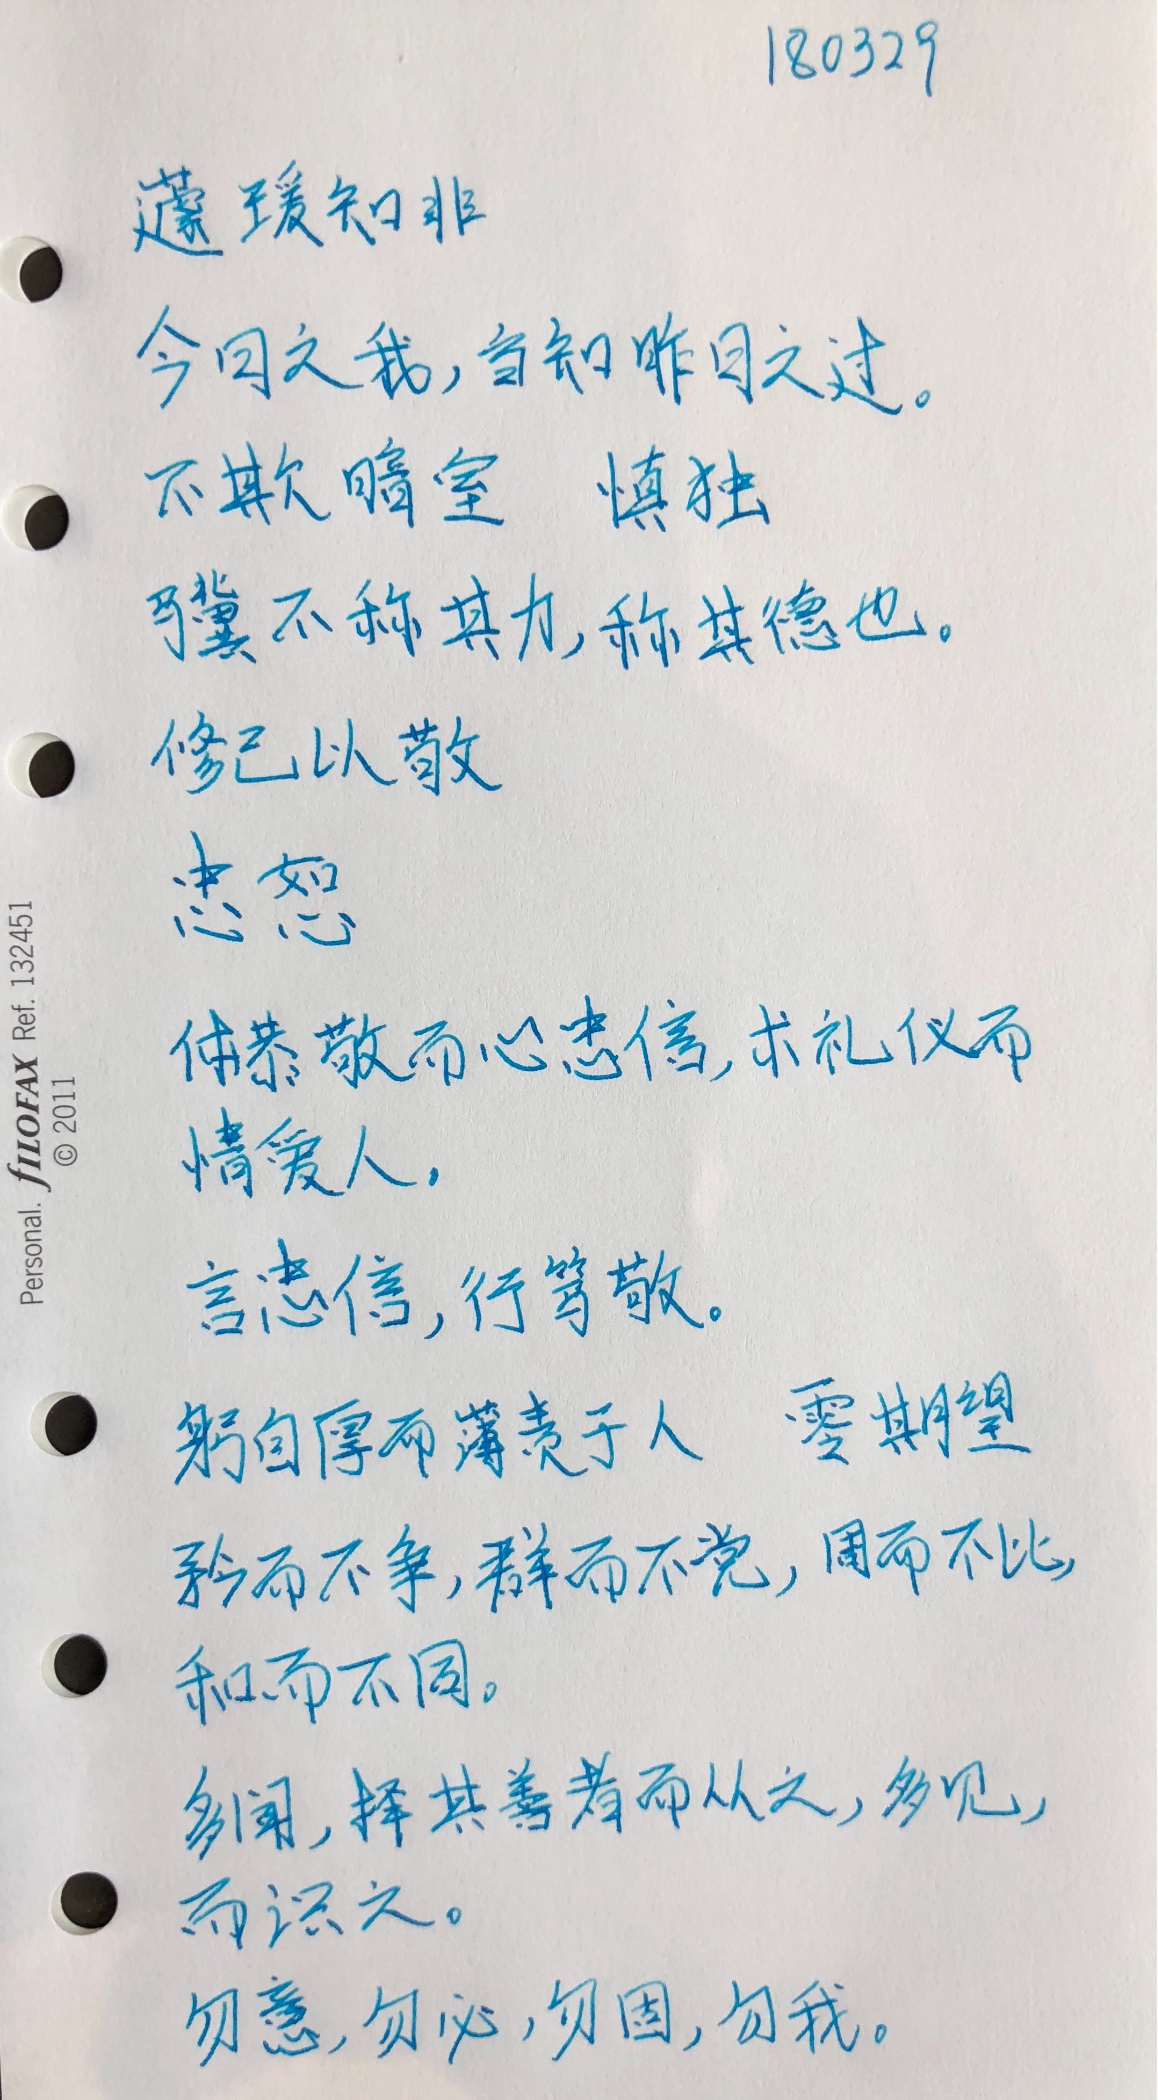 180329
蘧瑗知非
今日之我,当知昨日之过。
不欺暗室 慎独
骥不称其力,称其德也。
修己以敬
忠恕
体恭敬而心忠信,术礼仪而
情爱人.
言忠信,行笃敬。
躬自厚而薄责于人 零期望
矜而不争,群而不党,周而不比,
和而不同。
多闻,择其善者而从之,多见,
而识之。
勿意,勿必,勿固,勿我。
Personal. FILOFAX Ref. 132451
© 2011